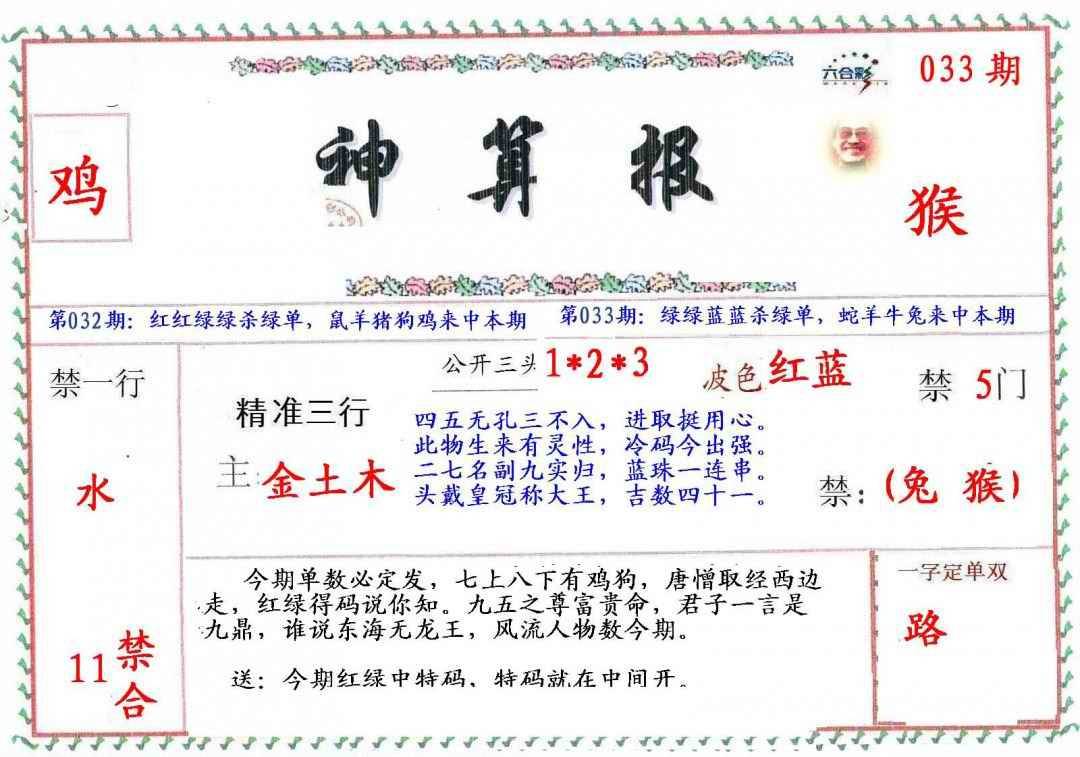 六合彩
033期
神算报
鸡
猴
第032期：红红绿绿杀绿单，鼠羊猪狗鸡来中本期
第033期：绿绿蓝蓝杀绿单，蛇羊牛兔来中本期
禁一行
水
11禁合
精准三行
主：金土木
公开三头 1*2*3
波色 红蓝
四五无孔三不入，进取挺用心。
此物生来有灵性，冷码今出强。
二七名副九实归，蓝珠一连串。
头戴皇冠称大王，吉数四十一。
禁 5门
禁：(兔 猴)
今期单数必定发，七上八下有鸡狗，唐憎取经西边
走，红绿得码说你知。九五之尊富贵命，君子一言是
九鼎，谁说东海无龙王，风流人物数今期。
送：今期红绿中特码，特码就在中间开。
一字定单双
路